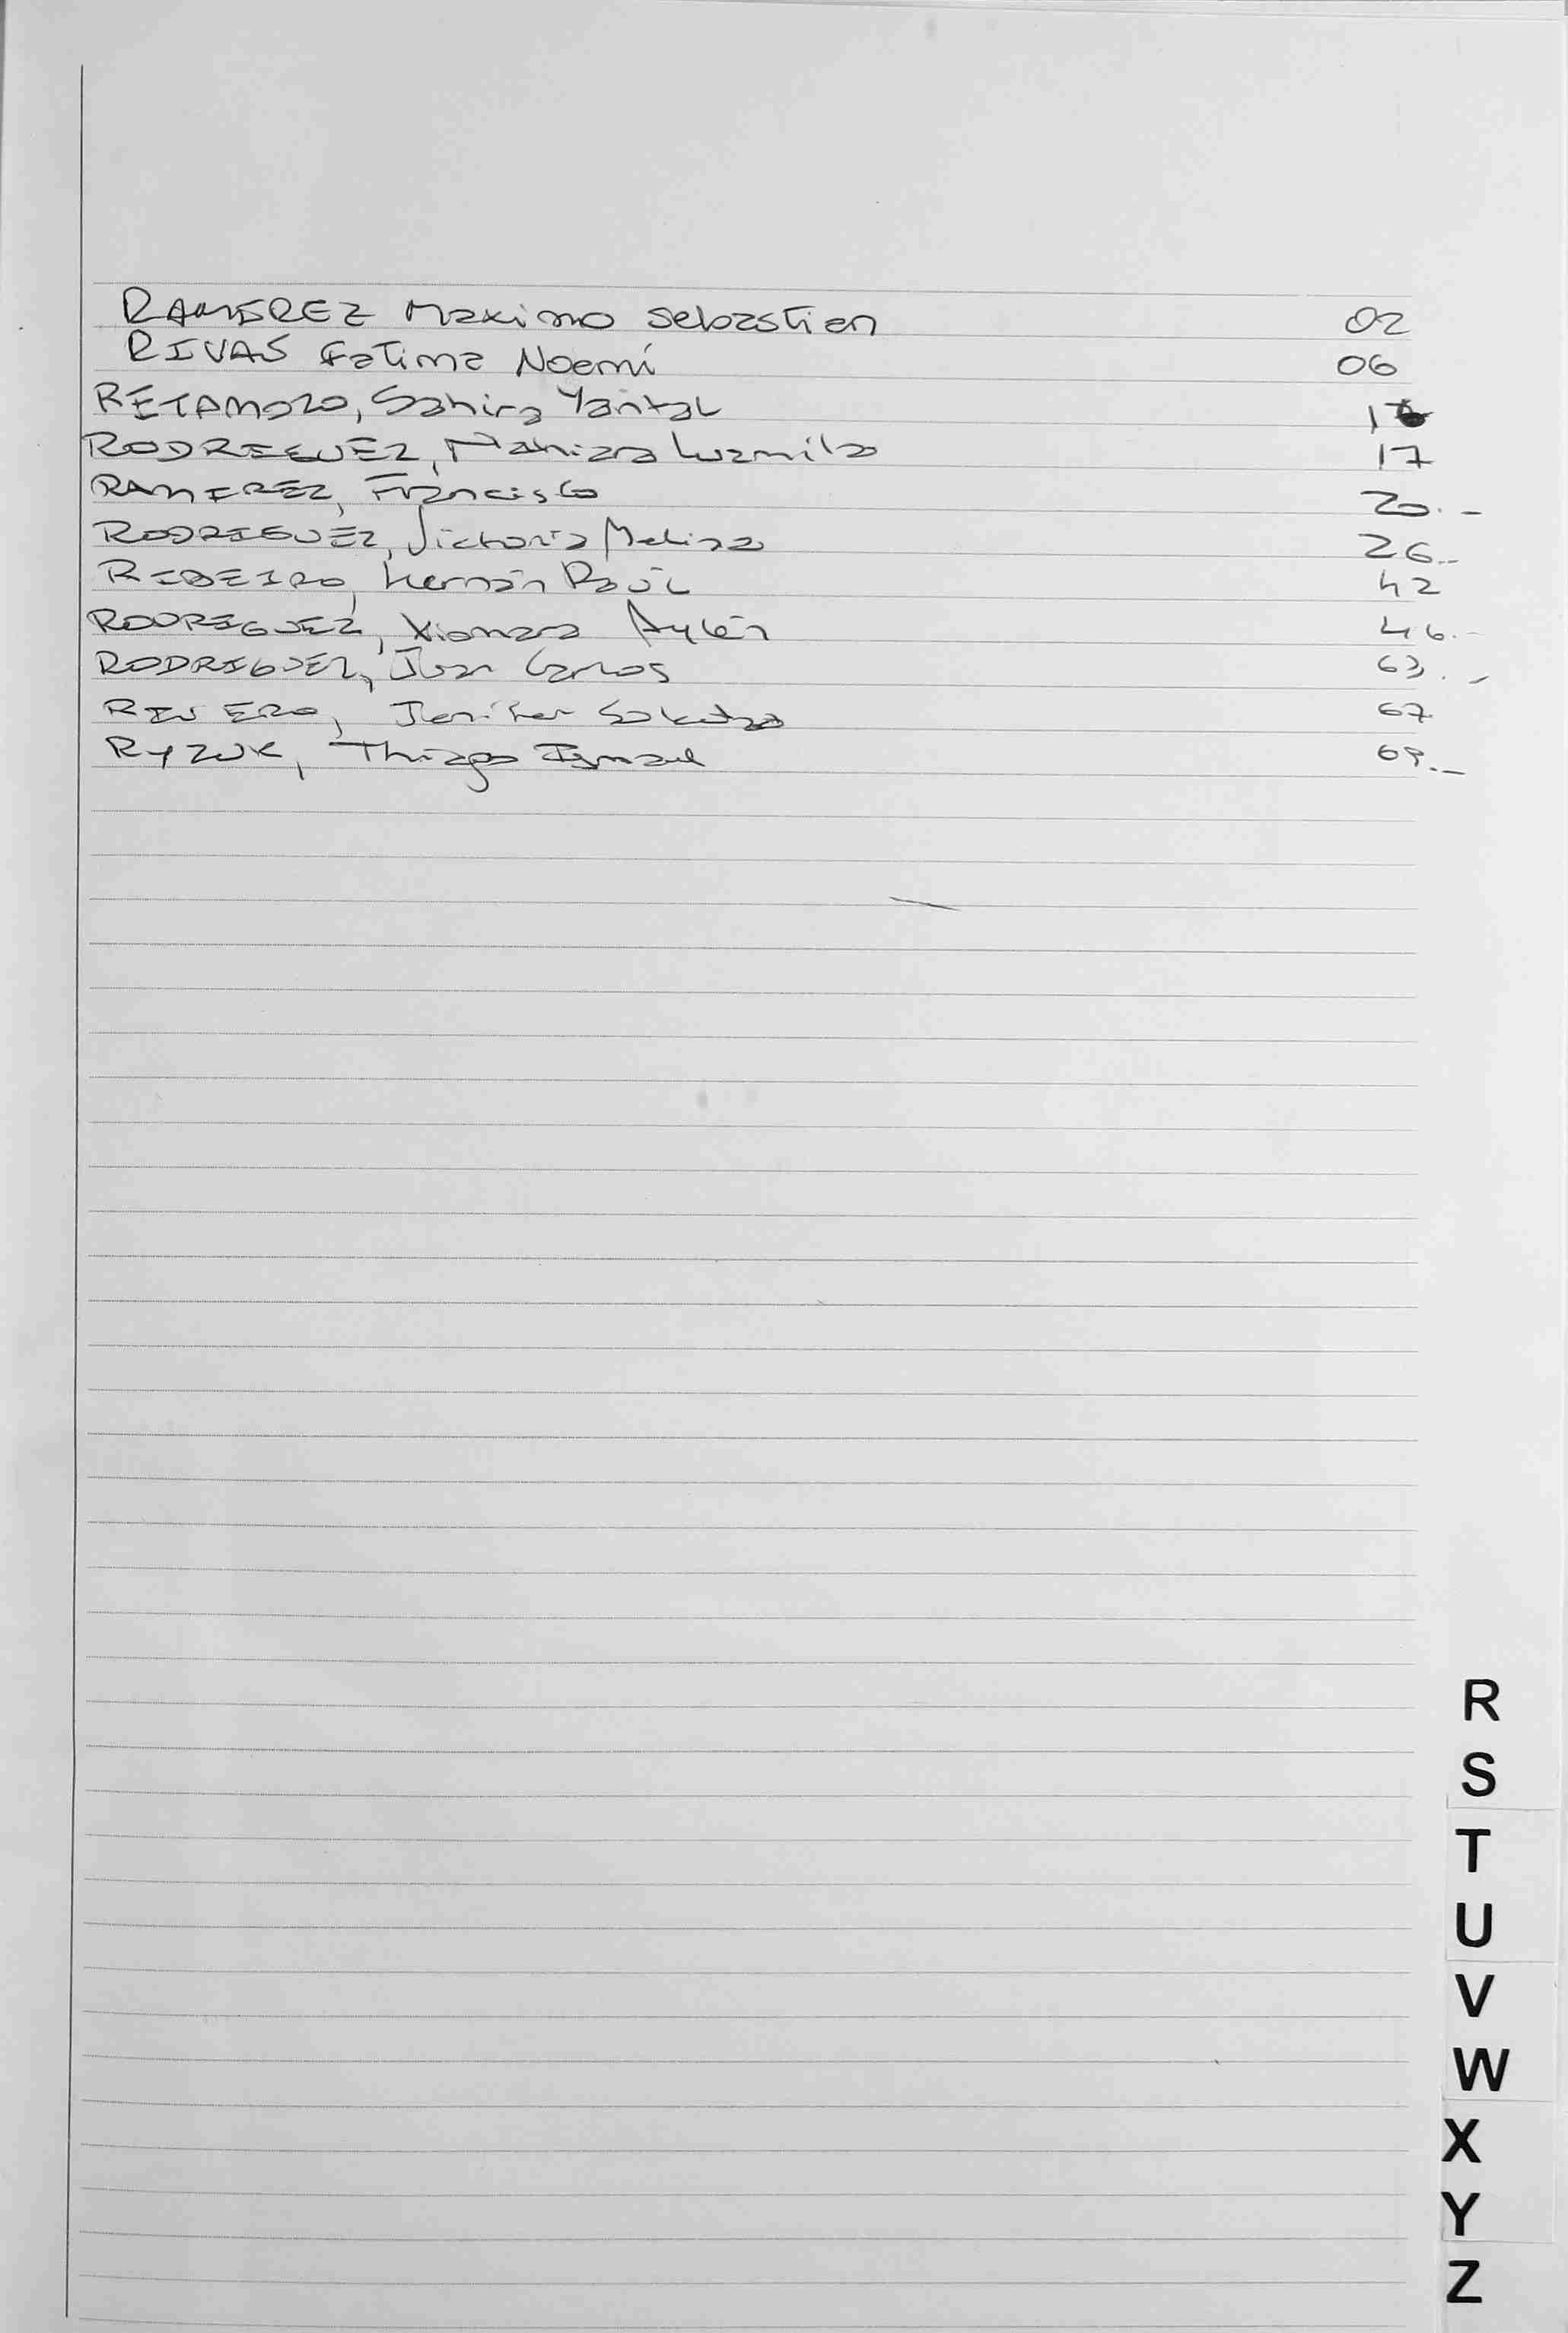 RAMIREZ Maximo Sebastian 02
RIVAS Fatima Noemí 06
RETAMOZO, Sahira Yantal
RODRIGUEZ, Luzmila 17
RAMIREZ, Francisco 20.-
RODRIGUEZ, Victoria Melina 26.-
RIBEIRO, Hernán Raúl 42
RODRIGUEZ, Xiomara Aylén 46.-
RODRIGUEZ, Juan Carlos 63.-
RIVERO, Jenifer 67
RYZUK, Thiago Ismael 69.-
R
S
T
U
V
W
X
Y
Z